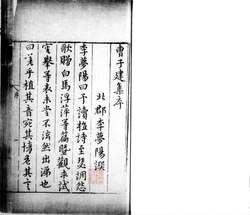 曹子建集序
北郡李夢陽撰
李夢陽曰予讀植詩至瑟調怨
歌贈白馬浮萍等篇暨觀求試
審舉等表未嘗不泫然出涕也
曰嗟乎植其音宛其情危其言